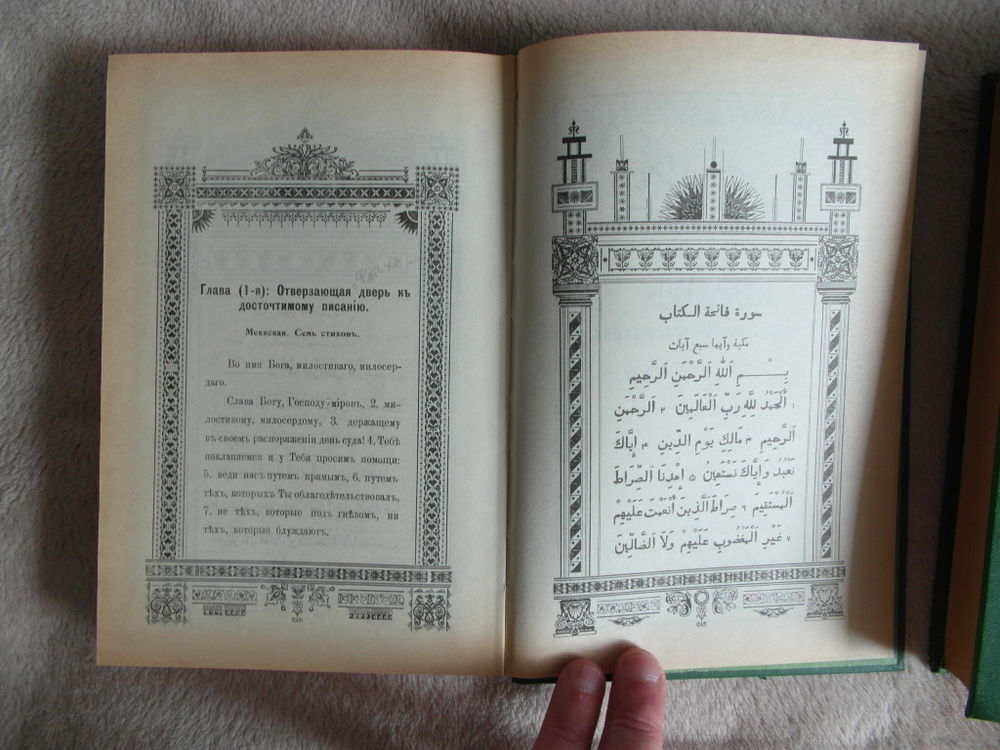 Глава (1-я): Отверзающая дверь къ
досточтимому писанію.
Меккская. Семь стиховъ.
Во имя Бога, милостиваго, милосер-
даго.
Слава Богу, Господу міровъ, 2. ми-
лостивому, милосердому, 3. держащему
въ своемъ распоряженіи день суда! 4. Тебѣ
покланяемся и у Тебя просимъ помощи:
5. веди насъ путемъ прямымъ, 6. путемъ
тѣхъ, которыхъ Ты облагодѣтельствовалъ,
7. не тѣхъ, которые подъ гнѣвомъ, ни
тѣхъ, которые блуждаютъ,
سورة فاتحة الكتاب
مكية وآيها سبع آيات
بِسْمِ اَللهِ اَلرَّحْمَنِ اَلرَّحِيمِ
١ اَلْحَمْدُ لِلَّهِ رَبِّ اَلْعَالَمِينَ ٢ اَلرَّحْمَنِ
اَلرَّحِيمِ ٣ مَالِكِ يَوْمِ الدِّينِ ٤ إِيَّاكَ
نَعْبُدُ وَإِيَّاكَ نَسْتَعِينُ ٥ اِهْدِنَا اَلصِّرَاطَ
اَلْمُسْتَقِيمَ ٦ صِرَاطَ الَّذِينَ أَنْعَمْتَ عَلَيْهِمْ
٧ غَيْرِ اَلْمَغْضُوبِ عَلَيْهِمْ وَلَا اَلضَّالِّينَ